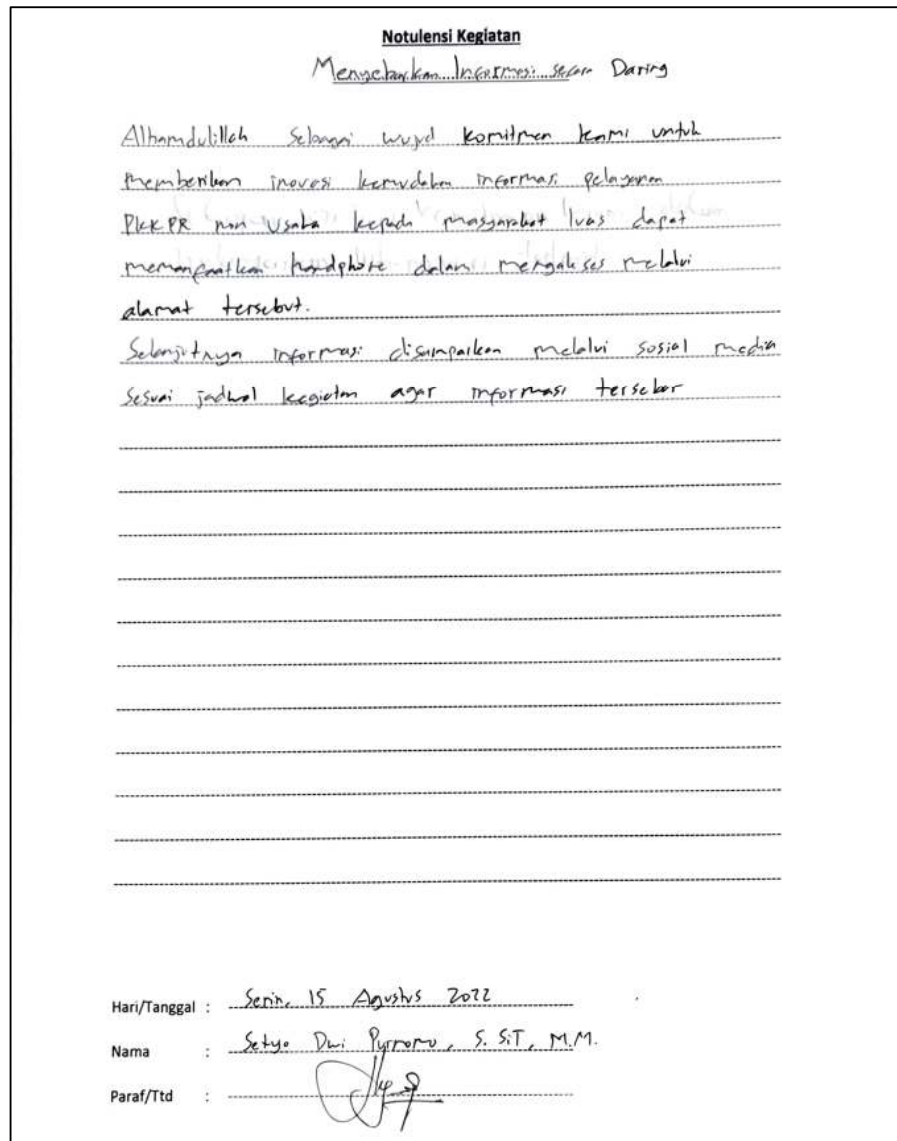 Notulensi Kegiatan
Menyebarkan Informasi secara Daring
Alhamdulillah Sebagai wujud komitmen kami untuk
memberikan inovasi kemudahan informasi pelayanan
PKKPR non Usaha kepada masyarakat luas dapat
memanfaatkan handphone dalam mengakses melalui
alamat tersebut.
Selanjutnya informasi disampaikan melalui sosial media
Sesuai jadwal kegiatan agar informasi tersebar
Hari/Tanggal : Senin, 15 Agustus 2022
Nama : Setyo Dwi Purnomo, S. SiT, M.M.
Paraf/Ttd :